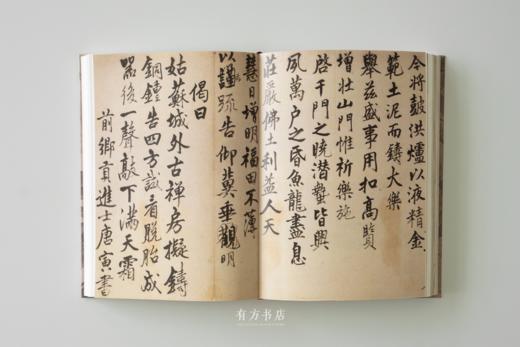 今將鼓洪爐以液精金
範土泥而鑄大樂
舉茲盛事用扣高賢
增壯山門惟祈樂施
啓千門之曉潛蟄皆興
夙萬户之昏魚龍盡息
莊嚴佛土利益人天
慧日增明福田不薄
以謹疏告仰冀垂觀明
偈曰
姑蘇城外古禪房擬鑄
銅鐘告四方試看脫胎成
器後一聲敲下滿天霜
前鄉貢進士唐寅書
有方书店